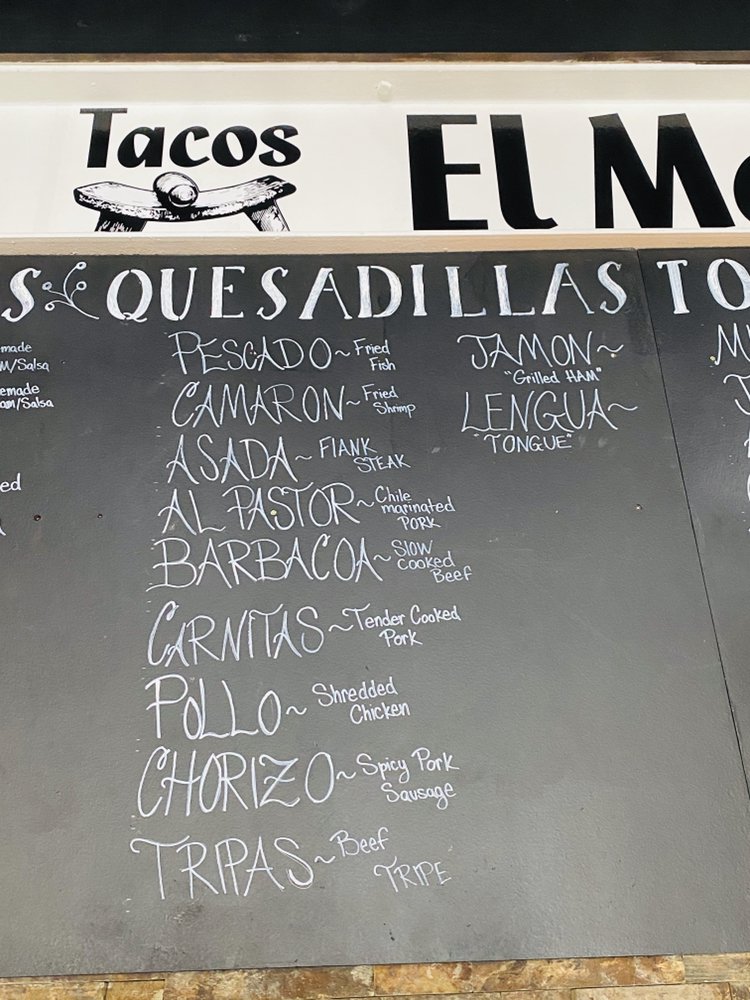 Tacos
El M
S QUESADILLAS TO
made
M/Salsa
emade
om/Salsa
ed
PESCADO~ Fried
Fish
CAMARON~ Fried
Shrimp
ASADA~ FLANK
STEAK
AL PASTOR~ Chile
marinated
PORK
BARBACOA~ Slow
Cooked
Beef
CARNITAS~ Tender Cooked
Pork
POLLO~ Shredded
Chicken
CHORIZO~ Spicy Pork
Sausage
TRIPAS~ Beef
TRIPE
JAMON~
"Grilled HAM"
LENGUA~
"TONGUE"